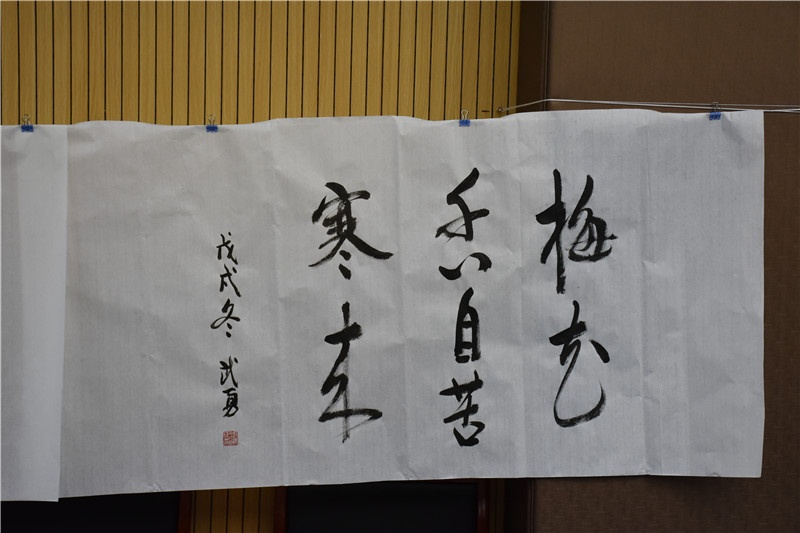 梅花
香自苦
寒来
戊戌冬 武勇